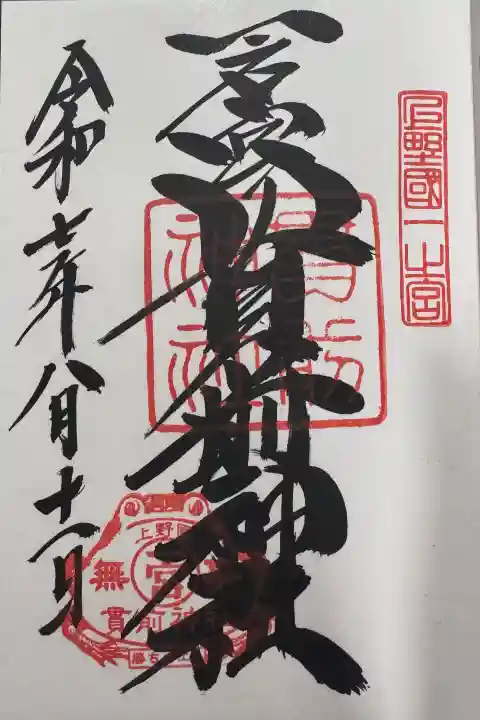 上野國一之宮
一之宮貫前神社
貫前神社
令和七年八月十一日
上野國
一宮
無
貫前神